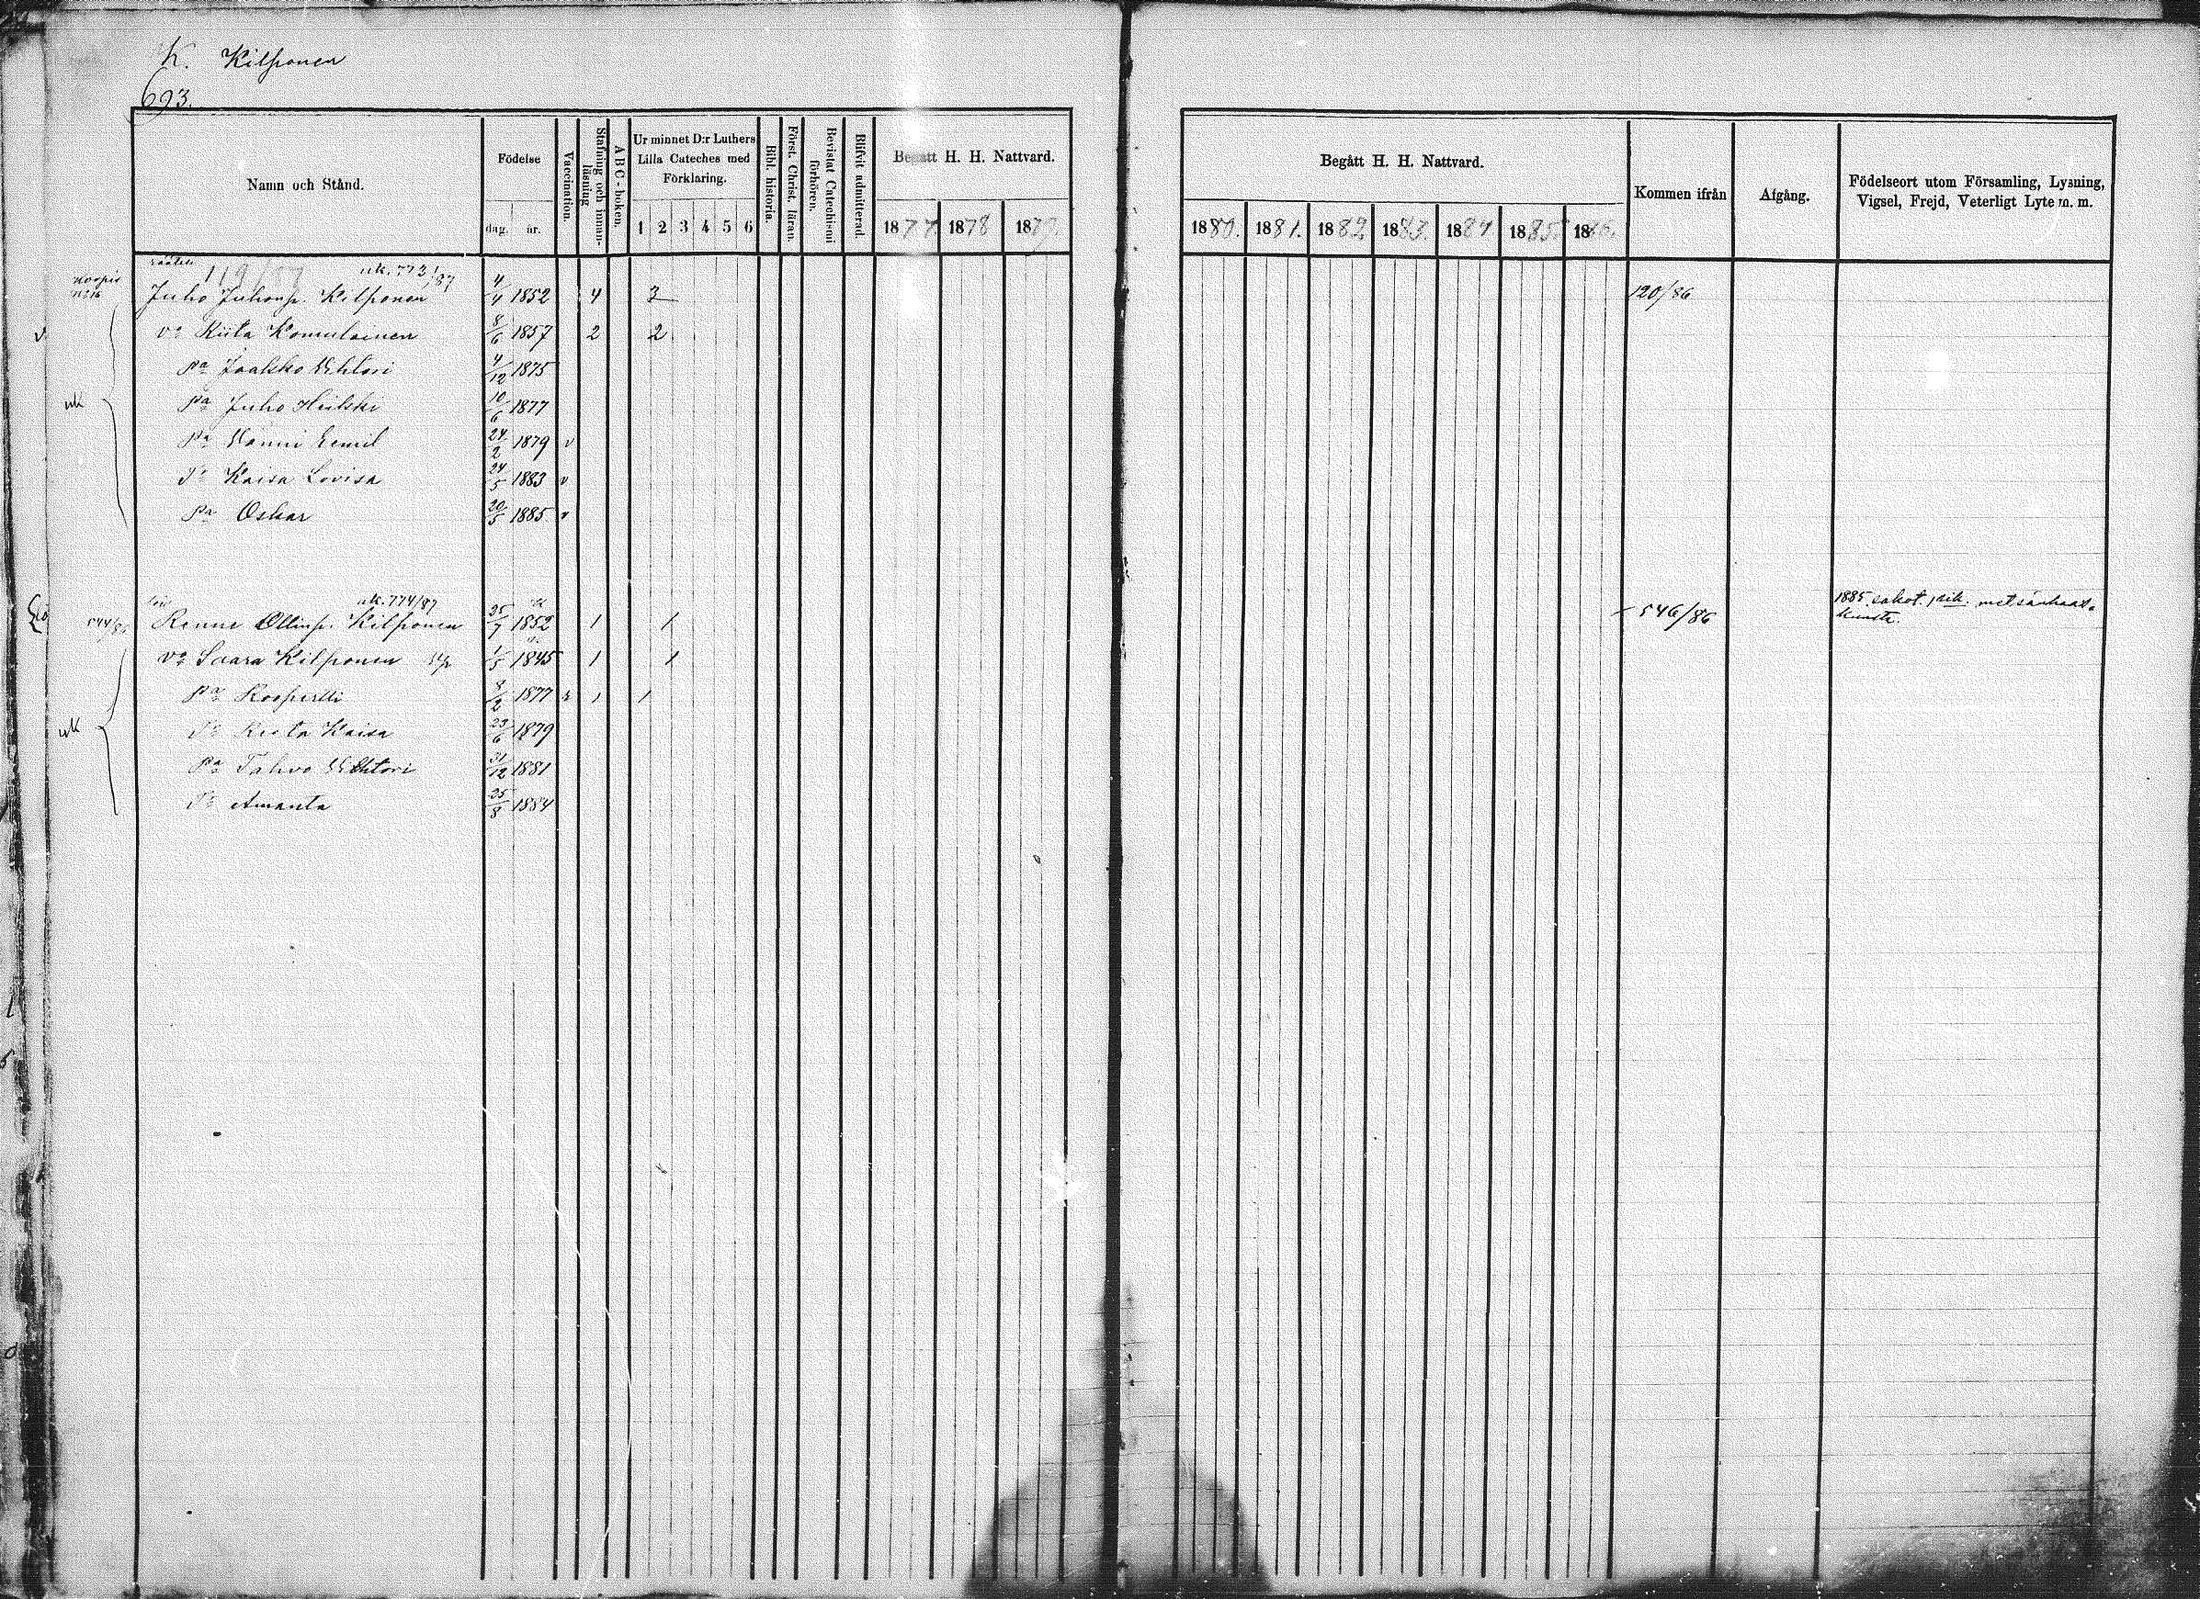 K. Kilponen
693.
Namn och Stånd.
Födelse
dag. år.
Vaccination.
Stafning och innan-läsning
ABC-boken.
Ur minnet D:r Luthers Lilla Cateches med Förklaring.
1 2 3 4 5 6
Bibl. historia.
Först. Christ. läran.
Bevistat Catechismi förhören.
Blifvit admitterad.
Begått H. H. Nattvard.
1877. 1878 1879.
Begått H. H. Nattvard.
1880. 1881. 1882 1883. 1884 1885. 1886.
Kommen ifrån
Afgång.
Födelseort utom Församling, Lysning, Vigsel, Frejd, Veterligt Lyte m. m.
119/87 uk. 773/87
Juho Juhonp. Kilponen 4/4 1852 4 3 120/86
v Vo Riita Komulainen 8/6 1857 2 2
pa Jaakko Vihtori 4/12 1875
uk pa Juho Heikki 10/6 1877
pa Hannu Eemil 24/2 1879 v
Tr Kaisa Lovisa 24/5 1883 v
pa Oskar 20/5 1885 v
uk. 774/87
Renne Ollinp. Kilponen 25/7 1852 1 1 546/86 1885 sakot.
Vo Saara Kilponen 1/5 1845 1 1
pa Roopertti 8/2 1877 1 1
uk Tr Reeta Kaisa 23/6 1879
pa Tahvo Vihtori 31/12 1881
Tr Amanta 25/8 1884